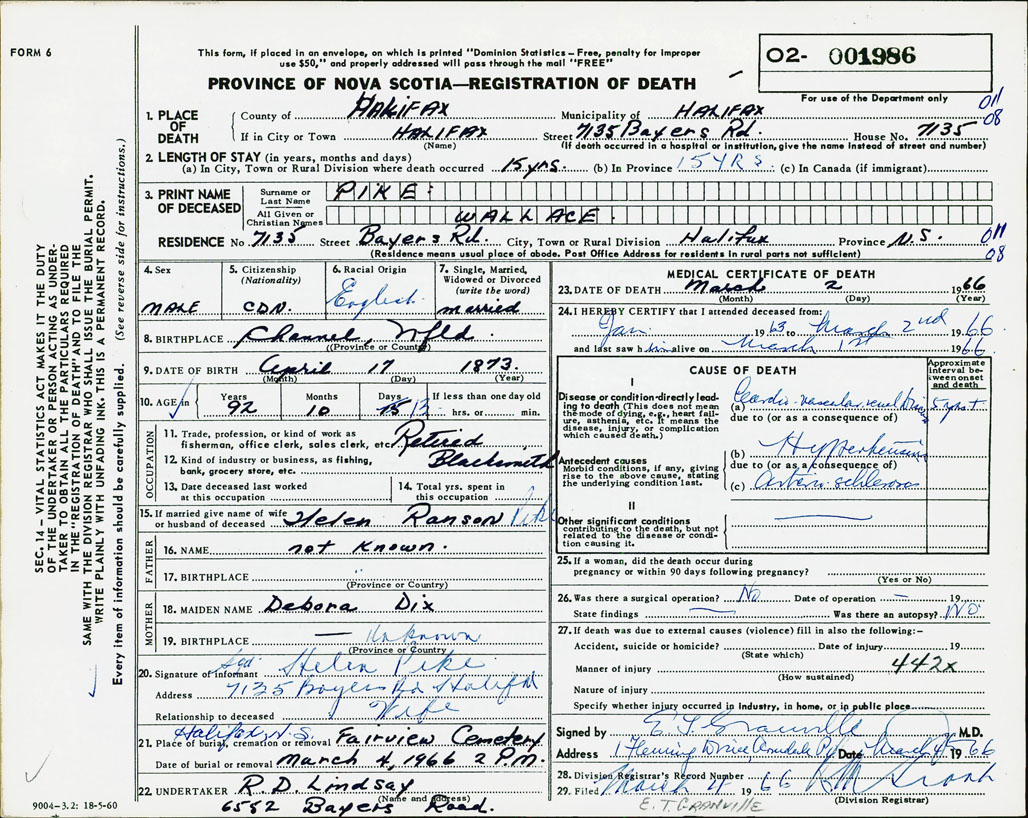 FORM 6
This form, if placed in an envelope, on which is printed "Dominion Statistics – Free, penalty for improper
use $50," and properly addressed will pass through the mail "FREE"
PROVINCE OF NOVA SCOTIA—REGISTRATION OF DEATH
O2- 001986
For use of the Department only
011
08
1. PLACE OF DEATH
County of HALIFAX Municipality of HALIFAX
If in City or Town HALIFAX Street 7135 Bayers Rd. House No. 7135
(Name) (If death occurred in a hospital or institution, give the name instead of street and number)
2. LENGTH OF STAY (in years, months and days)
(a) In City, Town or Rural Division where death occurred 15 yrs. (b) In Province 15 YRS (c) In Canada (if immigrant)
3. PRINT NAME OF DECEASED
Surname or Last Name PIKE
All Given or Christian Names WALLACE
RESIDENCE No. 7135 Street Bayers Rd. City, Town or Rural Division Halifax Province N.S.
011
08
(Residence means usual place of abode. Post Office Address for residents in rural parts not sufficient)
4. Sex MALE
5. Citizenship (Nationality) CDN.
6. Racial Origin English
7. Single, Married, Widowed or Divorced (write the word) married
8. BIRTHPLACE Channel, Nfld
(Province or Country)
9. DATE OF BIRTH April 17 1873
(Month) (Day) (Year)
10. AGE in Years 92 Months 10 Days 15 13 If less than one day old hrs. or min.
OCCUPATION
11. Trade, profession, or kind of work as fisherman, office clerk, sales clerk, etc. Retired
12. Kind of industry or business, as fishing, bank, grocery store, etc. Blacksmith
13. Date deceased last worked at this occupation
14. Total yrs. spent in this occupation
15. If married give name of wife or husband of deceased Helen Ranson Pike
FATHER
16. NAME not known.
17. BIRTHPLACE "
(Province or Country)
MOTHER
18. MAIDEN NAME Debora Dix
19. BIRTHPLACE — Unknown
(Province or Country)
20. Signature of informant Sgd Helen Pike
Address 7135 Bayers Rd Halifax
Relationship to deceased Wife
Halifax, N.S.
21. Place of burial, cremation or removal Fairview Cemetery
Date of burial or removal March 4, 1966 2 P.M.
22. UNDERTAKER R.D. Lindsay
(Name and address)
6552 Bayers Road.
MEDICAL CERTIFICATE OF DEATH
23. DATE OF DEATH March 2 1966
(Month) (Day) (Year)
24. I HEREBY CERTIFY that I attended deceased from:
Jan 1963 to March 2nd 1966
and last saw him alive on March 1st 1966
CAUSE OF DEATH
Approximate interval between onset and death
I
Disease or condition directly leading to death (This does not mean the mode of dying, e.g., heart failure, asthenia, etc. It means the disease, injury, or complication which caused death.)
(a) Cardio-vascular renal Disease 5 yrs +
due to (or as a consequence of)
Antecedent causes
Morbid conditions, if any, giving rise to the above cause, stating the underlying condition last.
(b) Hypertension
due to (or as a consequence of)
(c) Arterio schlerosis
II
Other significant conditions
contributing to the death, but not related to the disease or condition causing it.
25. If a woman, did the death occur during pregnancy or within 90 days following pregnancy?
(Yes or No)
26. Was there a surgical operation? No Date of operation — 19
State findings — Was there an autopsy? NO
27. If death was due to external causes (violence) fill in also the following:–
Accident, suicide or homicide? Date of injury 19
(State which)
442x
Manner of injury
(How sustained)
Nature of injury
Specify whether injury occurred in industry, in home, or in public place
Signed by E. T. Granville M.D.
Address 1 Fleming Drive Armdale Date March 4 1966
28. Division Registrar's Record Number
29. Filed March 4 1966
(Division Registrar)
E. T. GRANVILLE
SEC. 14 – VITAL STATISTICS ACT MAKES IT THE DUTY
OF THE UNDERTAKER OR PERSON ACTING AS UNDER-
TAKER TO OBTAIN ALL THE PARTICULARS REQUIRED
IN THE "REGISTRATION OF DEATH" AND TO FILE THE
SAME WITH THE DIVISION REGISTRAR WHO SHALL ISSUE THE BURIAL PERMIT.
WRITE PLAINLY WITH UNFADING INK. THIS IS A PERMANENT RECORD.
Every item of information should be carefully supplied. (See reverse side for instructions.)
9004–3.2: 18-5-60